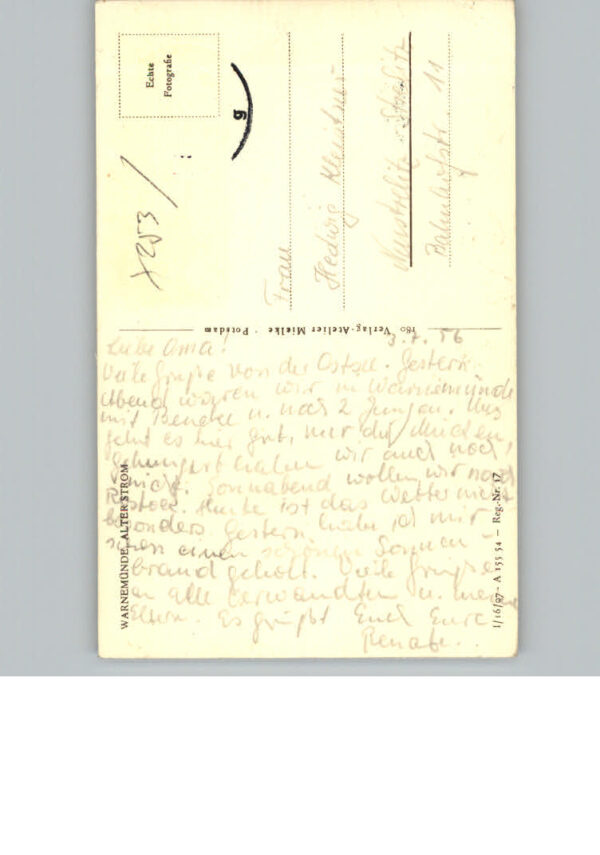 Echte
Fotografie
g
x253 /
Frau
Hedwig
Neustrelitz - Strelitz
Bahnhofstr. 11
180 Verlag-Atelier Mielke · Potsdam
3.7.56
Liebe Oma!
Viele Grüße von der Ostsee. Gestern
Abend waren wir in Warnemünde
mit u. noch 2 Jungen. Uns
geht es hier gut, nur die Mücken,
gehungert haben wir auch noch
nicht. Sonnabend wollen wir nach
Rostock. Heute ist das Wetter nicht
besonders. Gestern habe ich mir
schon einen schönen Sonnen-
brand geholt. Viele Grüße
an alle Verwandten u. meine
Eltern. Es grüßt Euch Eure
Renate.
WARNEMÜNDE, ALTER STROM
I/16/97 - A 155 54 - Reg.-Nr. 17